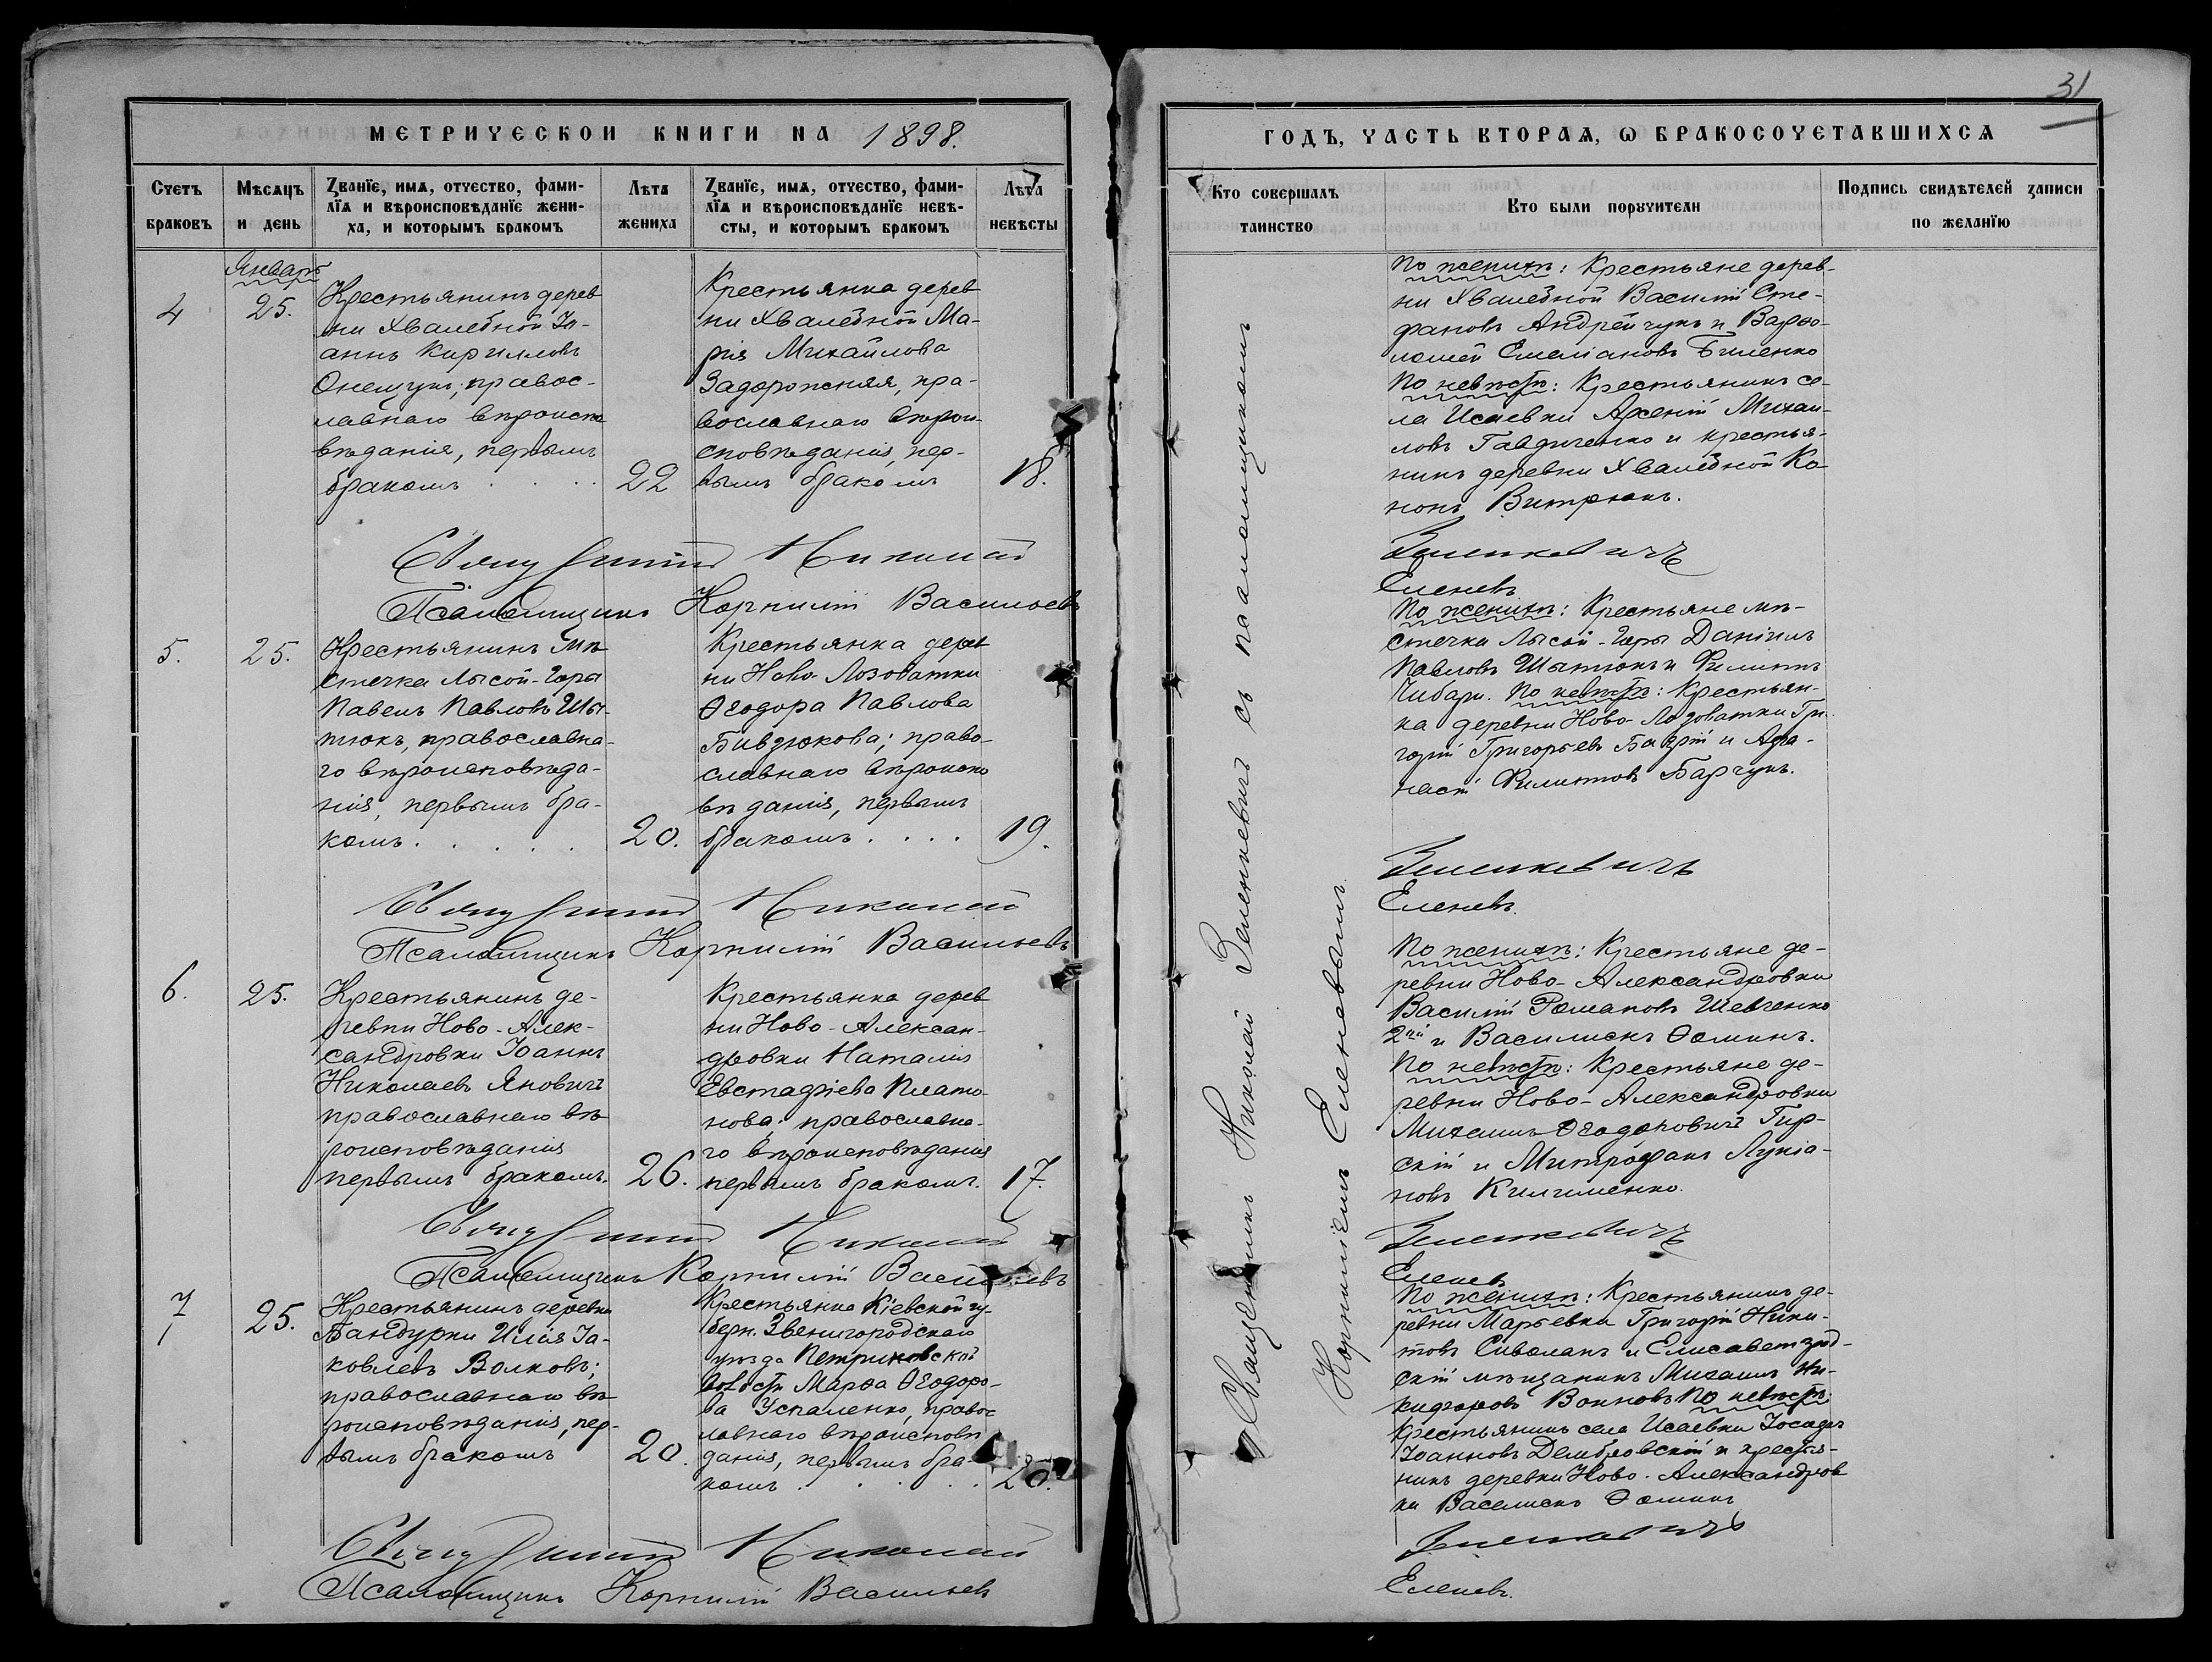 31
МЕТРИЧЕСКОЙ КНИГИ НА 1898.
ГОДЪ, ЧАСТЬ ВТОРАѦ, Ѡ БРАКОСОЧЕТАВШИХСѦ
Счетъ
браковъ
Мѣсѧцъ
и день
Званїе, имѧ, отчество, фами-
лїѧ и вѣроисповѣданїе жени-
ха, и которымъ бракомъ
Лѣта
жениха
Званїе, имѧ, отчество, фами-
лїѧ и вѣроисповѣданїе невѣ-
сты, и которымъ бракомъ
Лѣта
невѣсты
Кто совершалъ
таинство
Кто были поручители
Подпись свидѣтелей записи
по желанїю
Январь
4
25.
Крестьянинъ дерев
ни Хвалебной Іо-
аннъ Кирилловъ
Онещукъ; правос-
лавнаго вѣроиспо
вѣданія, первымъ
бракомъ . . . .
22
Крестьянка дерев
ни Хвалебной Ма-
рія Михайлова
Задорожняя, пра-
вославнаго вѣрои-
сповѣданія, пер-
вымъ бракомъ
18.
По женихѣ: Крестьяне дерев-
ни Хвалебной Василій Сте-
фановъ Андрейчукъ и Варѳо-
ломей Емеліановъ Биленко
По невѣстѣ: Крестьянинъ се-
ла Исаевки Арсеній Михаи-
ловъ Гавдиченко и крестья-
нинъ деревни Хвалебной Ко
нонъ Витрюкъ.
Священникъ Николай Зеленкевичъ
Псаломщикъ Корнилій Васильевъ Еленевъ
5.
25.
Крестьянинъ мѣ
стечка Лысой-Горы
Павелъ Павловъ Шы-
тюкъ, православна-
го вѣроисповѣда-
нія, первымъ бра-
комъ . . . . .
20.
Крестьянка дерев
ни Ново-Лозоватки
Ѳеодора Павлова
Бивзюкова; право-
славнаго вѣроиспо
вѣданія, первымъ
бракомъ . . . .
19.
По женихѣ: Крестьяне мѣ-
стечка Лысой-Горы Даніилъ
Павловъ Шытюкъ и Филиппъ
Чибари. По невѣстѣ: Крестьян-
ка деревни Ново-Лозоватки Гри-
горій Григорьевъ и Аѳа-
насій Филипповъ Барчукъ.
Священникъ Николай Зеленкевичъ
Псаломщикъ Корнилій Васильевъ Еленевъ.
6.
25.
Крестьянинъ де-
ревни Ново-Алек-
сандровки Іоаннъ
Николаевъ Яновичъ
православнаго вѣ
роисповѣданія
первымъ бракомъ.
26.
Крестьянка дерев
ни Ново-Алексан-
дровки Наталія
Евстафіева Плато-
нова; православна-
го вѣроисповѣданія
первымъ бракомъ.
17.
По женихѣ: Крестьяне де-
ревни Ново-Александровки
Василій Романовъ Шевченко
2ой и Василискъ Ѳоминъ.
По невѣстѣ: Крестьяне де-
ревни Ново-Александровки
Михаилъ Ѳеодоровичъ Гир-
скій и Митрофанъ Лукіа-
новъ Килименко.
Священникъ Николай Зеленкевичъ
Псаломщикъ Корнилій Васильевъ Еленевъ
7
25.
Крестьянинъ деревни
Бандурки Илія Іа-
ковлевъ Волковъ;
православнаго вѣ
роисповѣданія, пер-
вымъ бракомъ
20.
Крестьянка Кіевской гу-
берн. Звенигородскаго
уѣзда Петриковской
волости Марѳа Ѳеодоро-
ва Успаленко, правос
лавнаго вѣроисповѣ
данія, первымъ бра-
комъ . . . . .
20.
По женихѣ: Крестьянинъ де-
ревни Марьевки Григорій Ники-
товъ Сиволапъ и Елисаветград-
скій мѣщанинъ Михаилъ Ни-
кифоровъ Воиновъ По невѣстѣ
Крестьянинъ села Исаевки Іосифъ
Іоанновъ Дембровскій и крестья-
нинъ деревни Ново-Александров
ки Василискъ Ѳоминъ
Священникъ Николай Зеленкевичъ
Псаломщикъ Корнилій Васильевъ Еленевъ.
Священникъ Николай Зеленкевичъ съ псаломщикомъ
Корниліемъ Еленевымъ